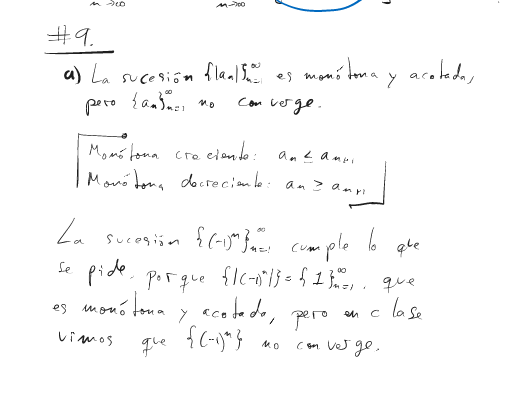 n→∞ n→∞
#9.
a) La sucesión {|aₙ|}ₙ₌₁^∞ es monótona y acotada,
pero {aₙ}ₙ₌₁^∞ no converge.
Monótona creciente: aₙ ≤ aₙ₊₁
Monótona decreciente: aₙ ≥ aₙ₊₁
La sucesión {(-1)ⁿ}ₙ₌₁^∞ cumple lo que
se pide, porque {|(-1)ⁿ|} = {1}ₙ₌₁^∞, que
es monótona y acotada, pero en clase
vimos que {(-1)ⁿ} no converge.